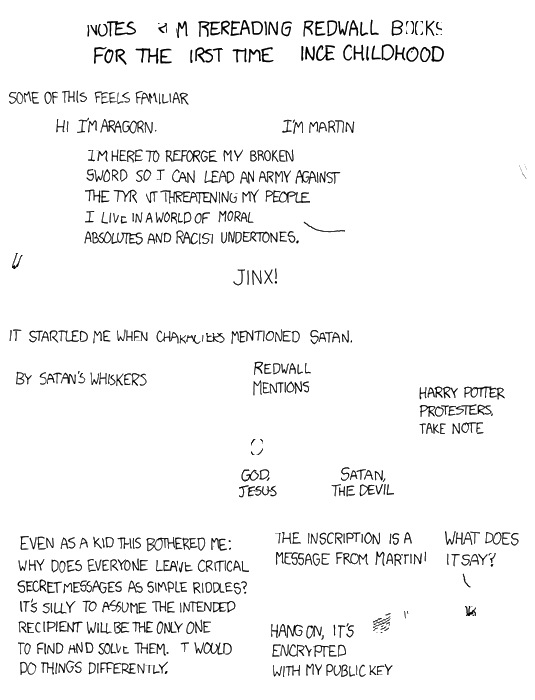 NOTES M REREADING REDWALL BOOKS
FOR THE IRST TIME INCE CHILDHOOD
SOME OF THIS FEELS FAMILIAR
HI I'M ARAGORN.
I'M MARTIN
I'M HERE TO REFORGE MY BROKEN
SWORD SO I CAN LEAD AN ARMY AGAINST
THE TYR NT THREATENING MY PEOPLE
I LIVE IN A WORLD OF MORAL
ABSOLUTES AND RACIST UNDERTONES.
JINX!
IT STARTLED ME WHEN CHARACTERS MENTIONED SATAN.
BY SATAN'S WHISKERS
REDWALL
MENTIONS
HARRY POTTER
PROTESTERS,
TAKE NOTE
GOD,
JESUS
SATAN,
THE DEVIL
EVEN AS A KID THIS BOTHERED ME:
WHY DOES EVERYONE LEAVE CRITICAL
SECRET MESSAGES AS SIMPLE RIDDLES?
IT'S SILLY TO ASSUME THE INTENDED
RECIPIENT WILL BE THE ONLY ONE
TO FIND AND SOLVE THEM. I WOULD
DO THINGS DIFFERENTLY.
THE INSCRIPTION IS A
MESSAGE FROM MARTIN!
WHAT DOES
IT SAY?
HANG ON, IT'S
ENCRYPTED
WITH MY PUBLIC KEY